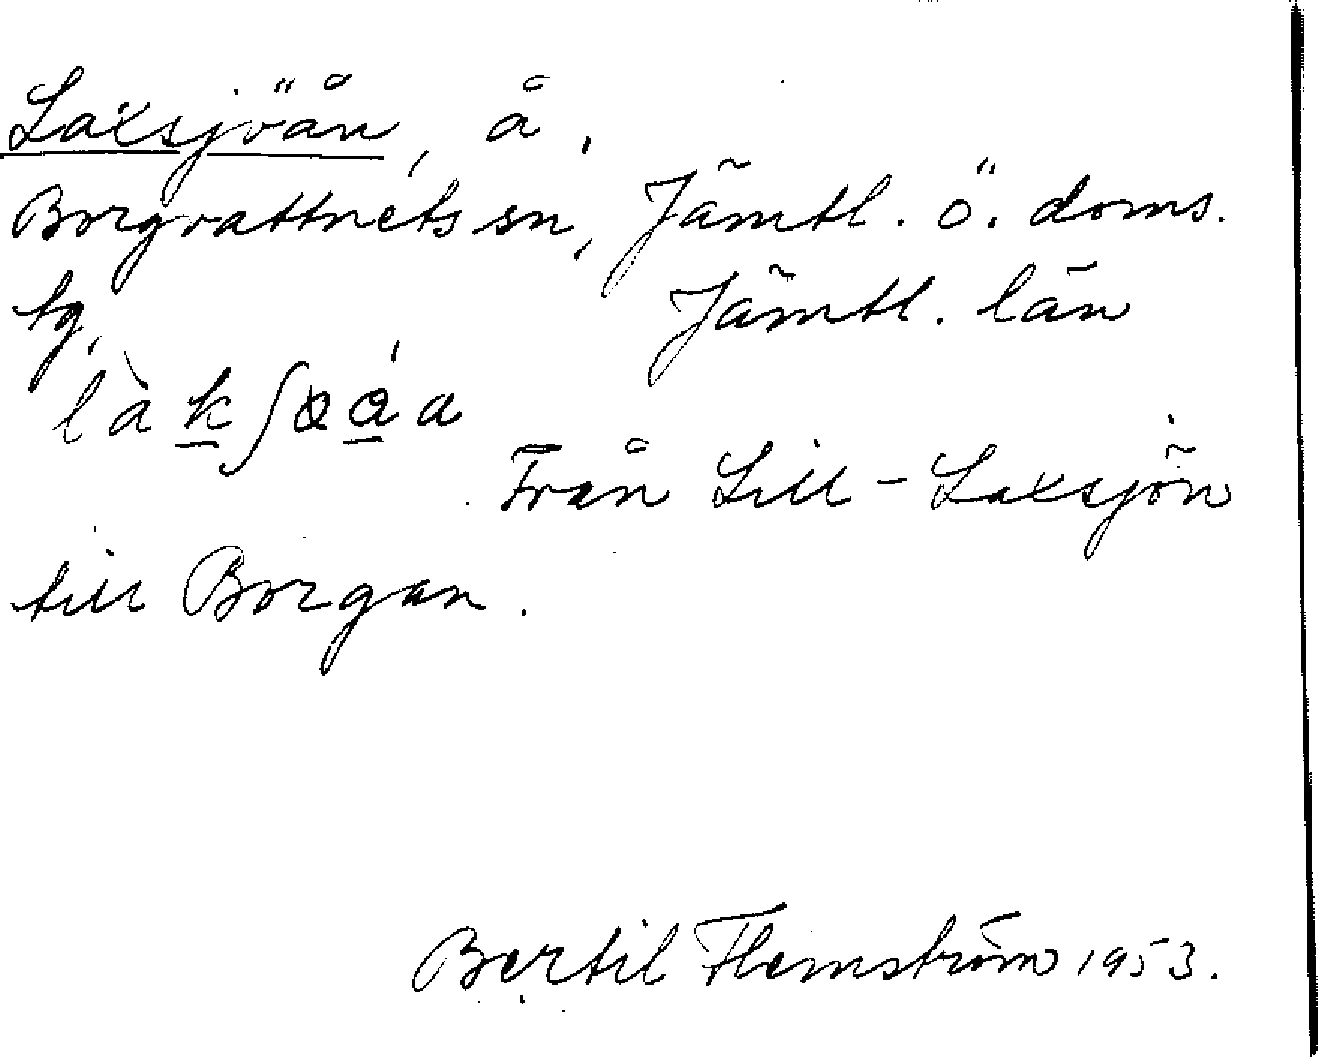 Laxsjöån, å,
Borgvattnets sn, Jämtl. ö. doms.
tg, Jämtl. län
Från Lill-Laxsjön
till Borgan.
Bertil Flemström 1953.